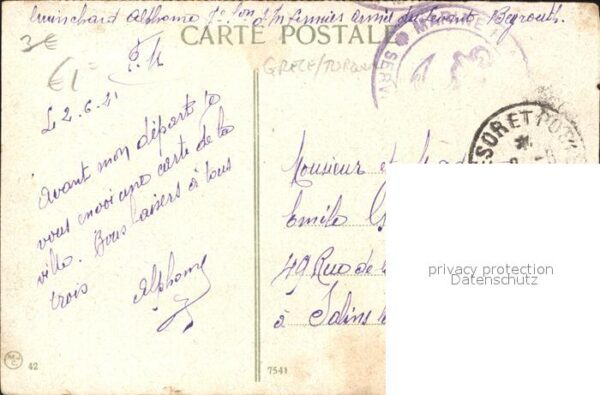 Alphonse 1e Son d'Infirmiers Armée du Levant Beyrouth.
CARTE POSTALE
3€
€1-
F.M
GRECE/TURQUIE
SERV
L 2.6.21
SOR ET POSTE
Avant mon départ je
vous envoi une carte de la
ville. Bons baisers à tous
trois Alphonse
Monsieur et Mad
Emile G
49 Rue de
à Salins
privacy protection
Datenschutz
42
7541